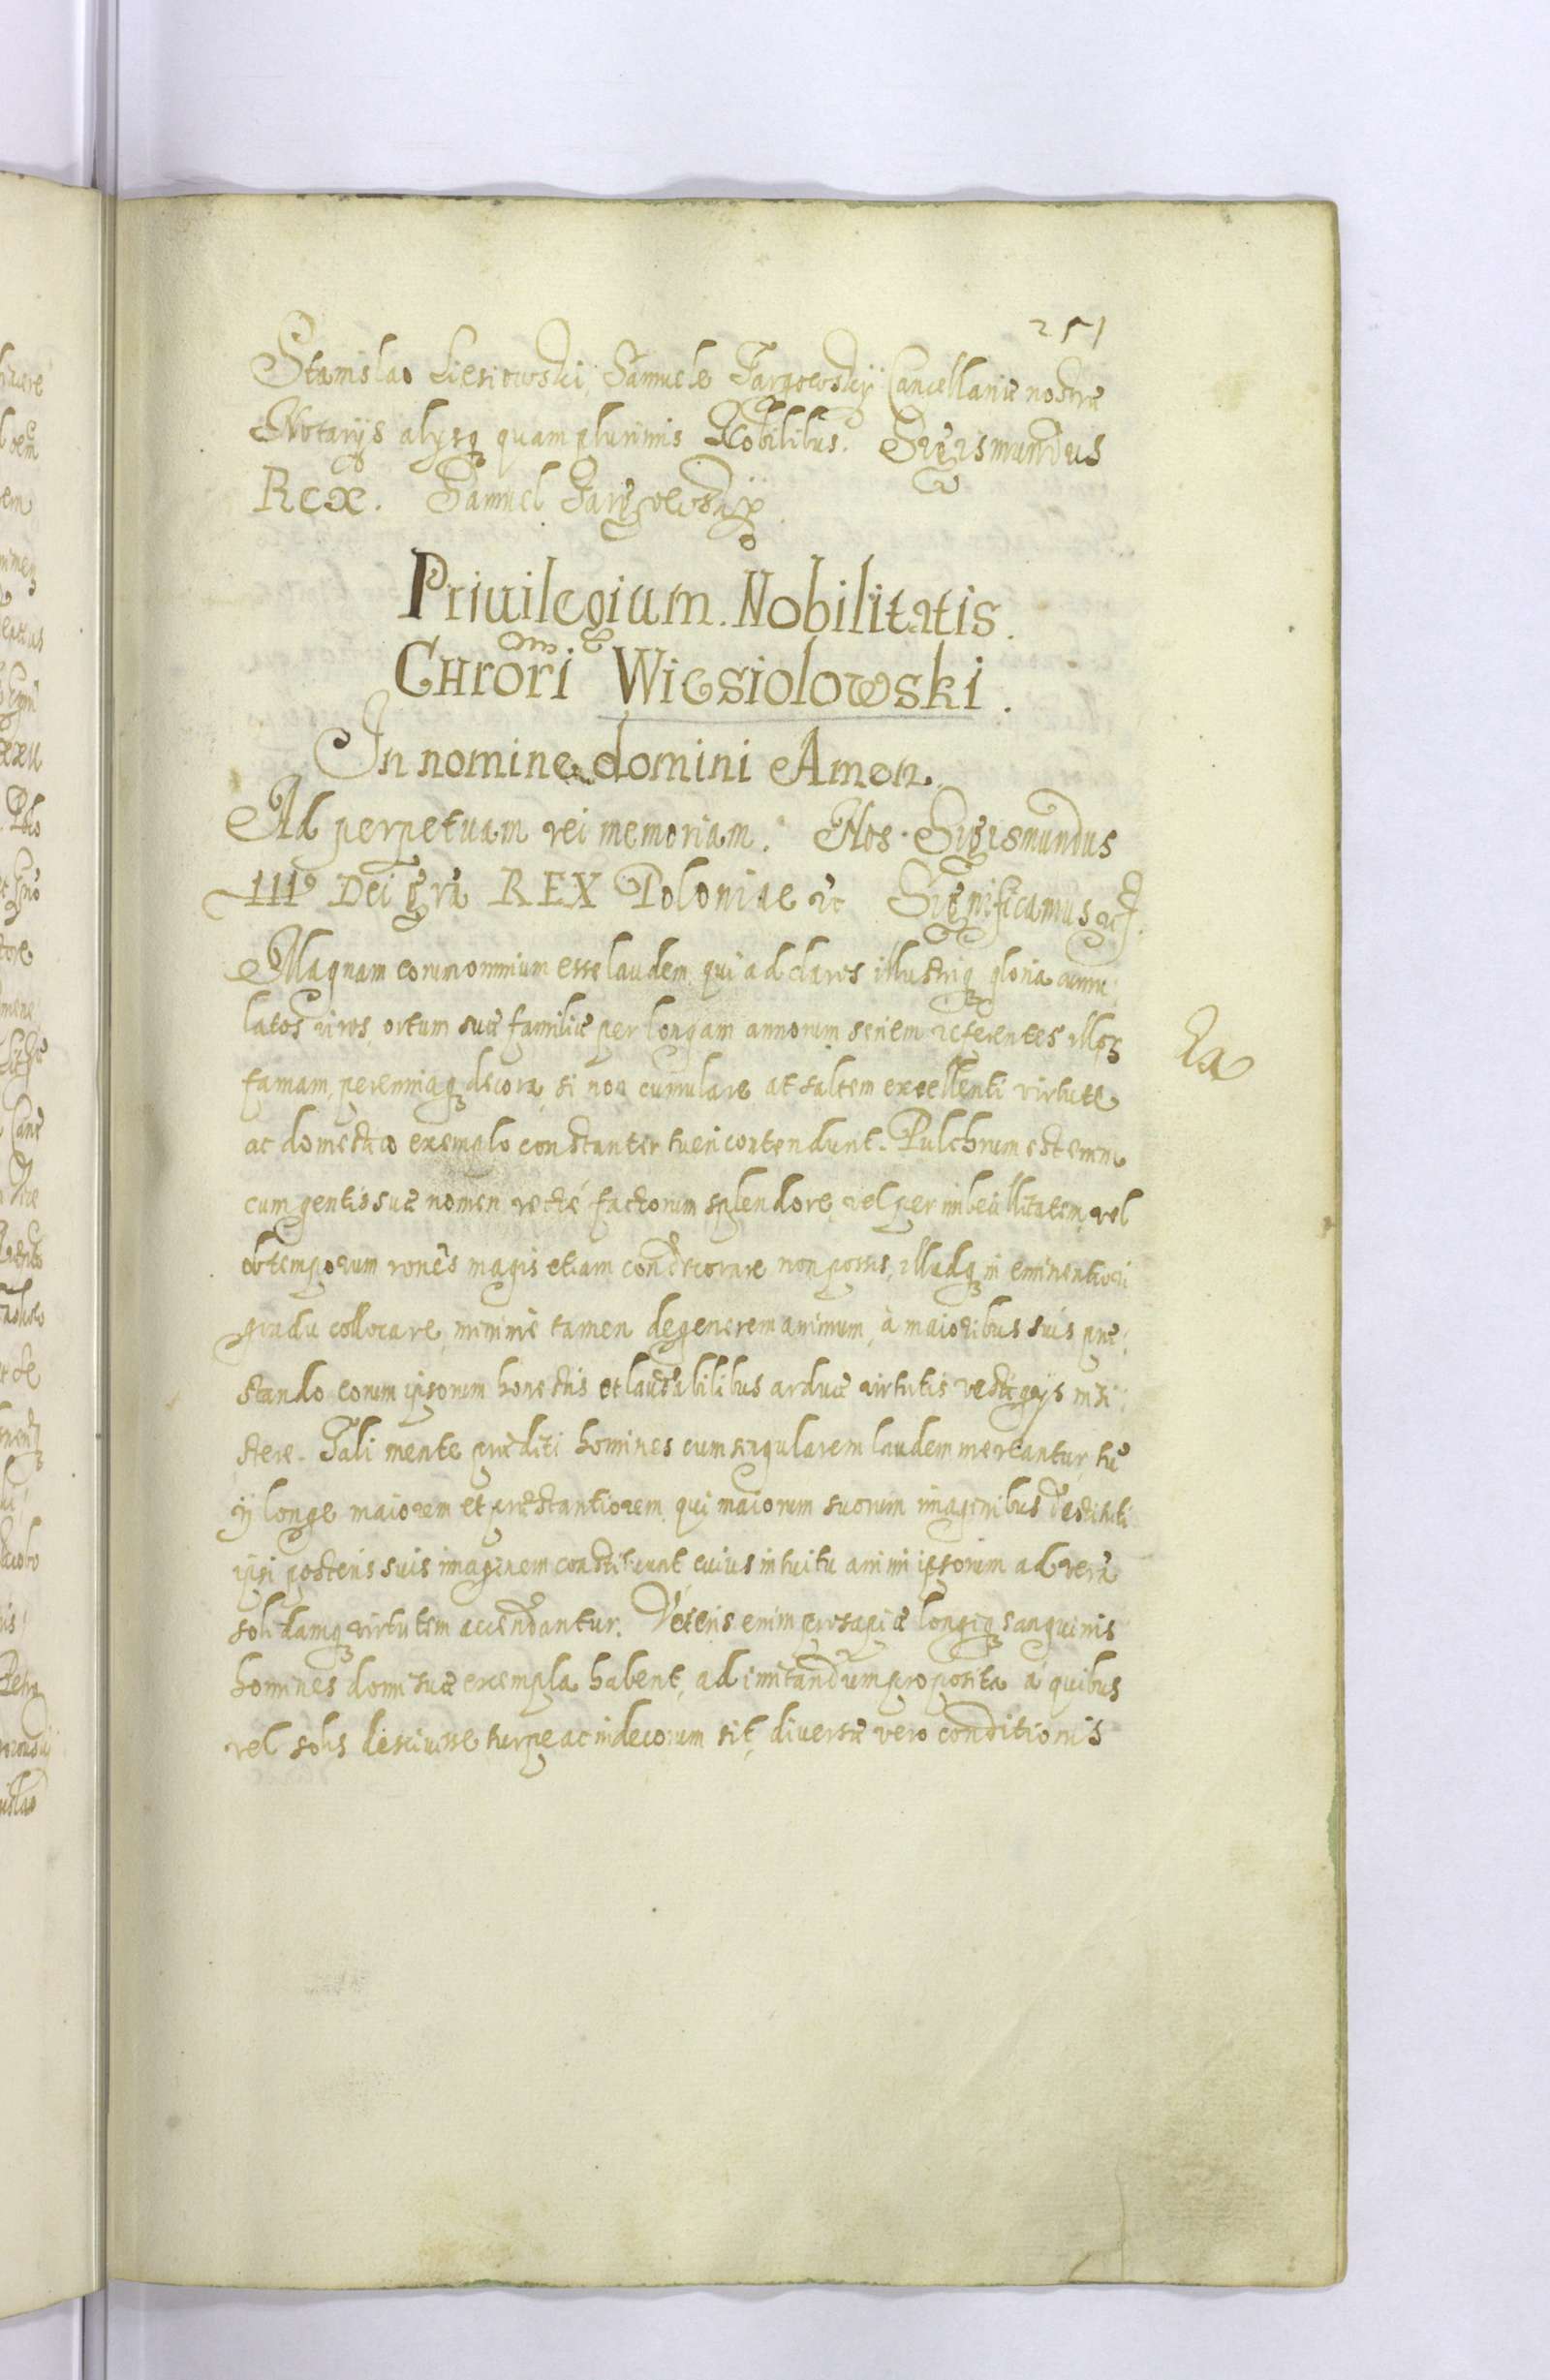 251
Stanislao Liesiowski, Samuele Targowskij Cancellariæ nostræ
Notarijs alijsq quamplurimis Nobilibus. Sigismundus
Rex. Samuel Targowskij
Priuilegium Nobilitatis.
Chrōri Wiesiolowski.
In nomine domini Amen.
Ad perpetuam rei memoriam. Nos Sigismundus
III Dei grā REX Poloniae etc Significamus etc.
Magnam eorum omnium esse laudem qui ad claros illustriq gloria cumu
latos viros, ortum suæ familiæ per longam annorum seriem referentes illoq
famam, perenniaq decora, si non cumulare at saltem excellenti virtute
ac domestico exemplo constanter tueri contendunt. Pulchrum est enim
cum gentis suæ nomen recté factorum splendore, vel per imbecillitatem, vel
ob temporum ronēs magis etiam condecorare non possis, illudq in eminentiori
gradu collocare, minimè tamen degenerem animum, à maioribus suis præ:
stando eorum ipsorum honestis et laudabilibus arduæ virtutis vestigijs insi:
stere. Tali mente præditi homines cum singularem laudem mereantur, tū
ij longe maiorem et præstantiorem, qui maiorum suorum imaginibus destituti
ipsi posteris suis imaginem constituunt cuius intuitu animi ipsorum ad verā
solidamq virtutem accendantur. Veteris enim prosapiæ longiq sanguinis
homines domi suæ exempla habent, ad imitandum proposita à quibus
vel solis descivisse turpe ac indecorum sit, diversæ vero conditionis